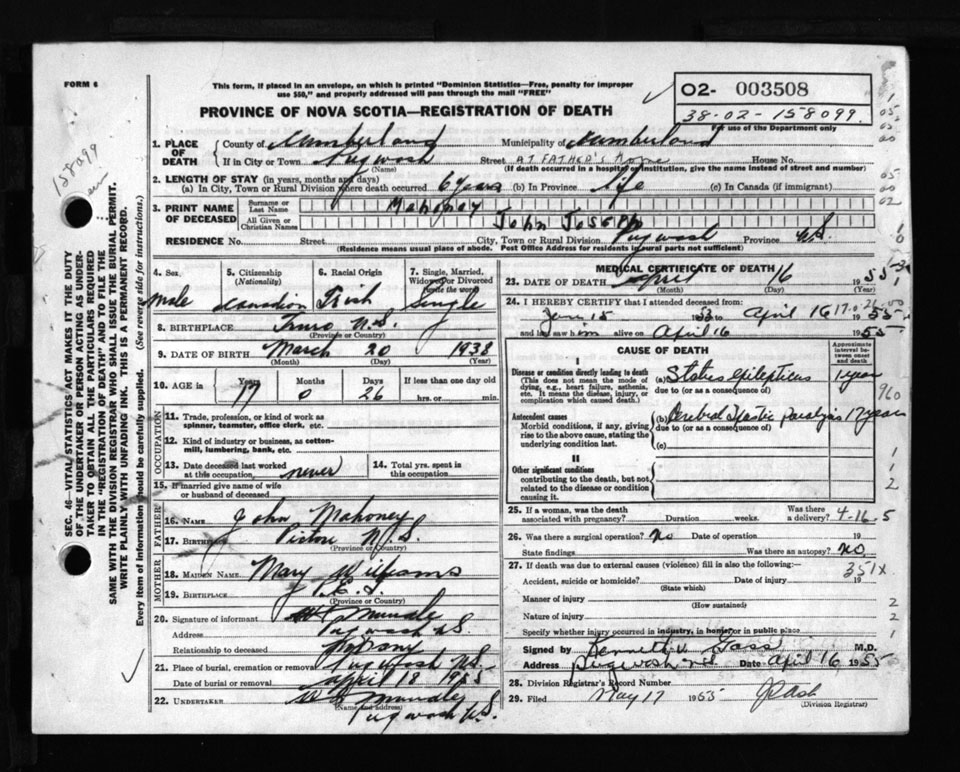 FORM 6
This form, if placed in an envelope, on which is printed "Dominion Statistics—Free, penalty for improper
use $50," and properly addressed will pass through the mail "FREE"
PROVINCE OF NOVA SCOTIA—REGISTRATION OF DEATH
02- 003508
38-02-158099
For use of the Department only
158099
SEC. 46—VITAL STATISTICS ACT MAKES IT THE DUTY
OF THE UNDERTAKER OR PERSON ACTING AS UNDER-
TAKER TO OBTAIN ALL THE PARTICULARS REQUIRED
IN THE "REGISTRATION OF DEATH" AND TO FILE THE
SAME WITH THE DIVISION REGISTRAR WHO SHALL ISSUE THE BURIAL PERMIT.
WRITE PLAINLY WITH UNFADING INK. THIS IS A PERMANENT RECORD.
Every item of information should be carefully supplied. (See reverse side for instructions.)
1. PLACE OF DEATH
County of Cumberland Municipality of Cumberland
If in City or Town Pugwash Street AT FATHER'S HOME House No.
(Name) (If death occurred in a hospital or institution, give the name instead of street and number)
2. LENGTH OF STAY (in years, months and days)
(a) In City, Town or Rural Division where death occurred 6 years (b) In Province life (c) In Canada (if immigrant)
3. PRINT NAME OF DECEASED
Surname or Last Name Mahoney
All Given or Christian Names John Joseph
RESIDENCE No. Street City, Town or Rural Division Pugwash Province N.S.
(Residence means usual place of abode. Post Office Address for residents in rural parts not sufficient)
4. Sex Male
5. Citizenship (Nationality) Canadian
6. Racial Origin Irish
7. Single, Married, Widowed or Divorced (write the word) Single
8. BIRTHPLACE Truro N.S.
(Province or Country)
9. DATE OF BIRTH March 20 1938
(Month) (Day) (Year)
10. AGE in Years 17 Months 0 Days 26 If less than one day old hrs. or min.
OCCUPATION
11. Trade, profession, or kind of work as
spinner, teamster, office clerk, etc.
12. Kind of industry or business, as cotton-
mill, lumbering, bank, etc.
13. Date deceased last worked at this occupation never 14. Total yrs. spent in this occupation
15. If married give name of wife
or husband of deceased
FATHER
16. NAME John Mahoney
17. BIRTHPLACE Pictou N.S.
(Province or Country)
MOTHER
18. MAIDEN NAME Mary Williams
19. BIRTHPLACE P.E.I.
(Province or Country)
20. Signature of informant
Address Pugwash N.S.
Relationship to deceased
21. Place of burial, cremation or removal Pugwash N.S.
Date of burial or removal April 18 1955
22. UNDERTAKER
(Name and address)
Pugwash N.S.
MEDICAL CERTIFICATE OF DEATH
23. DATE OF DEATH April 16 1955
(Month) (Day)
24. I HEREBY CERTIFY that I attended deceased from:
Jan 15 53 to April 16 1955
and last saw him alive on April 16 1955
CAUSE OF DEATH
Approximate interval between onset and death
I
Disease or condition directly leading to death
(This does not mean the mode of dying, e.g., heart failure, asthenia, etc. It means the disease, injury, or complication which caused death.)
(a) Status epilepticus 1 year
due to (or as a consequence of)
960
Antecedent causes
Morbid conditions, if any, giving rise to the above cause, stating the underlying condition last.
(b) Cerebral Spastic Paralysis 17 years
due to (or as a consequence of)
(c)
II
Other significant conditions
contributing to the death, but not related to the disease or condition causing it.
25. If a woman, was the death associated with pregnancy? Duration weeks. Was there a delivery? 4-16-5
26. Was there a surgical operation? No Date of operation 19
State findings Was there an autopsy? No
27. If death was due to external causes (violence) fill in also the following:—
351X
Accident, suicide or homicide? Date of injury 19
(State which)
Manner of injury
(How sustained)
Nature of injury
Specify whether injury occurred in industry, in home, or in public place
Signed by Kenneth V. Gass M.D.
Address Pugwash N.S. Date April 16 1955
28. Division Registrar's Record Number
29. Filed May 17 1955
(Division Registrar)